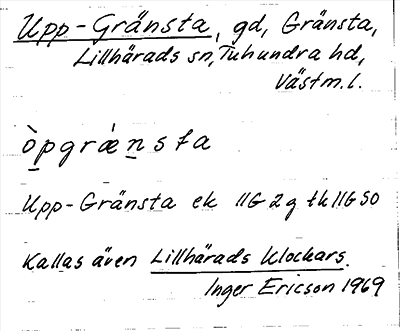 Upp-Gränsta, gd, Gränsta,
Lillhärads sn, Tuhundra hd,
Västm.l.
òpgrǽnsta
Upp-Gränsta ek 11G 2g tk 11G SO
Kallas även Lillhärads Klockars.
Inger Ericson 1969